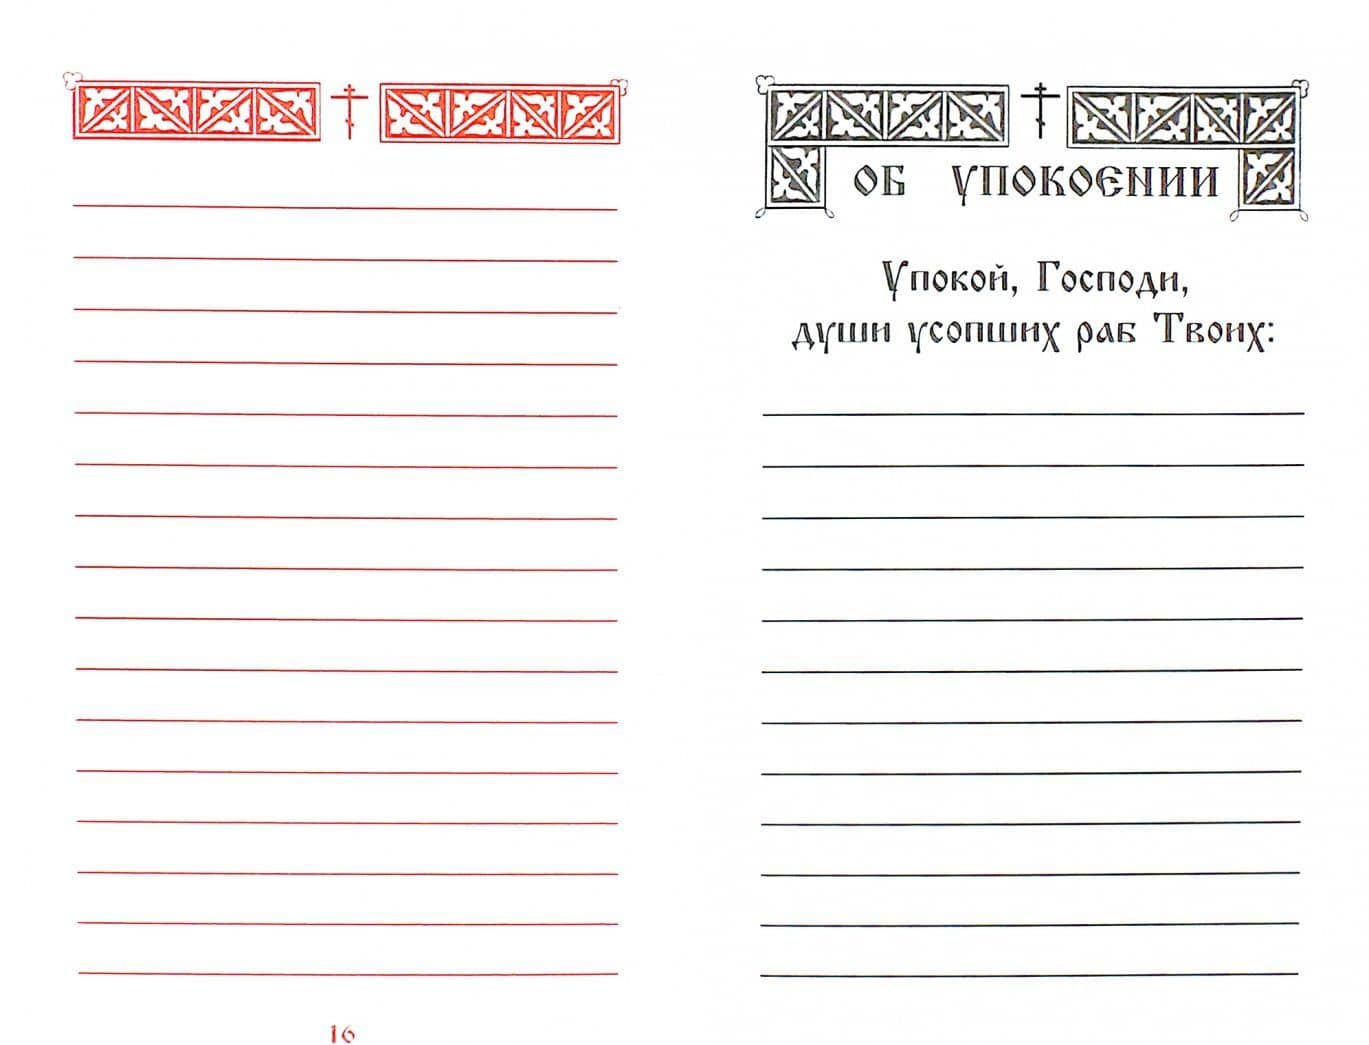 16
ОБ УПОКОЕНИИ
Упокой, Господи,
души усопших раб Твоих: